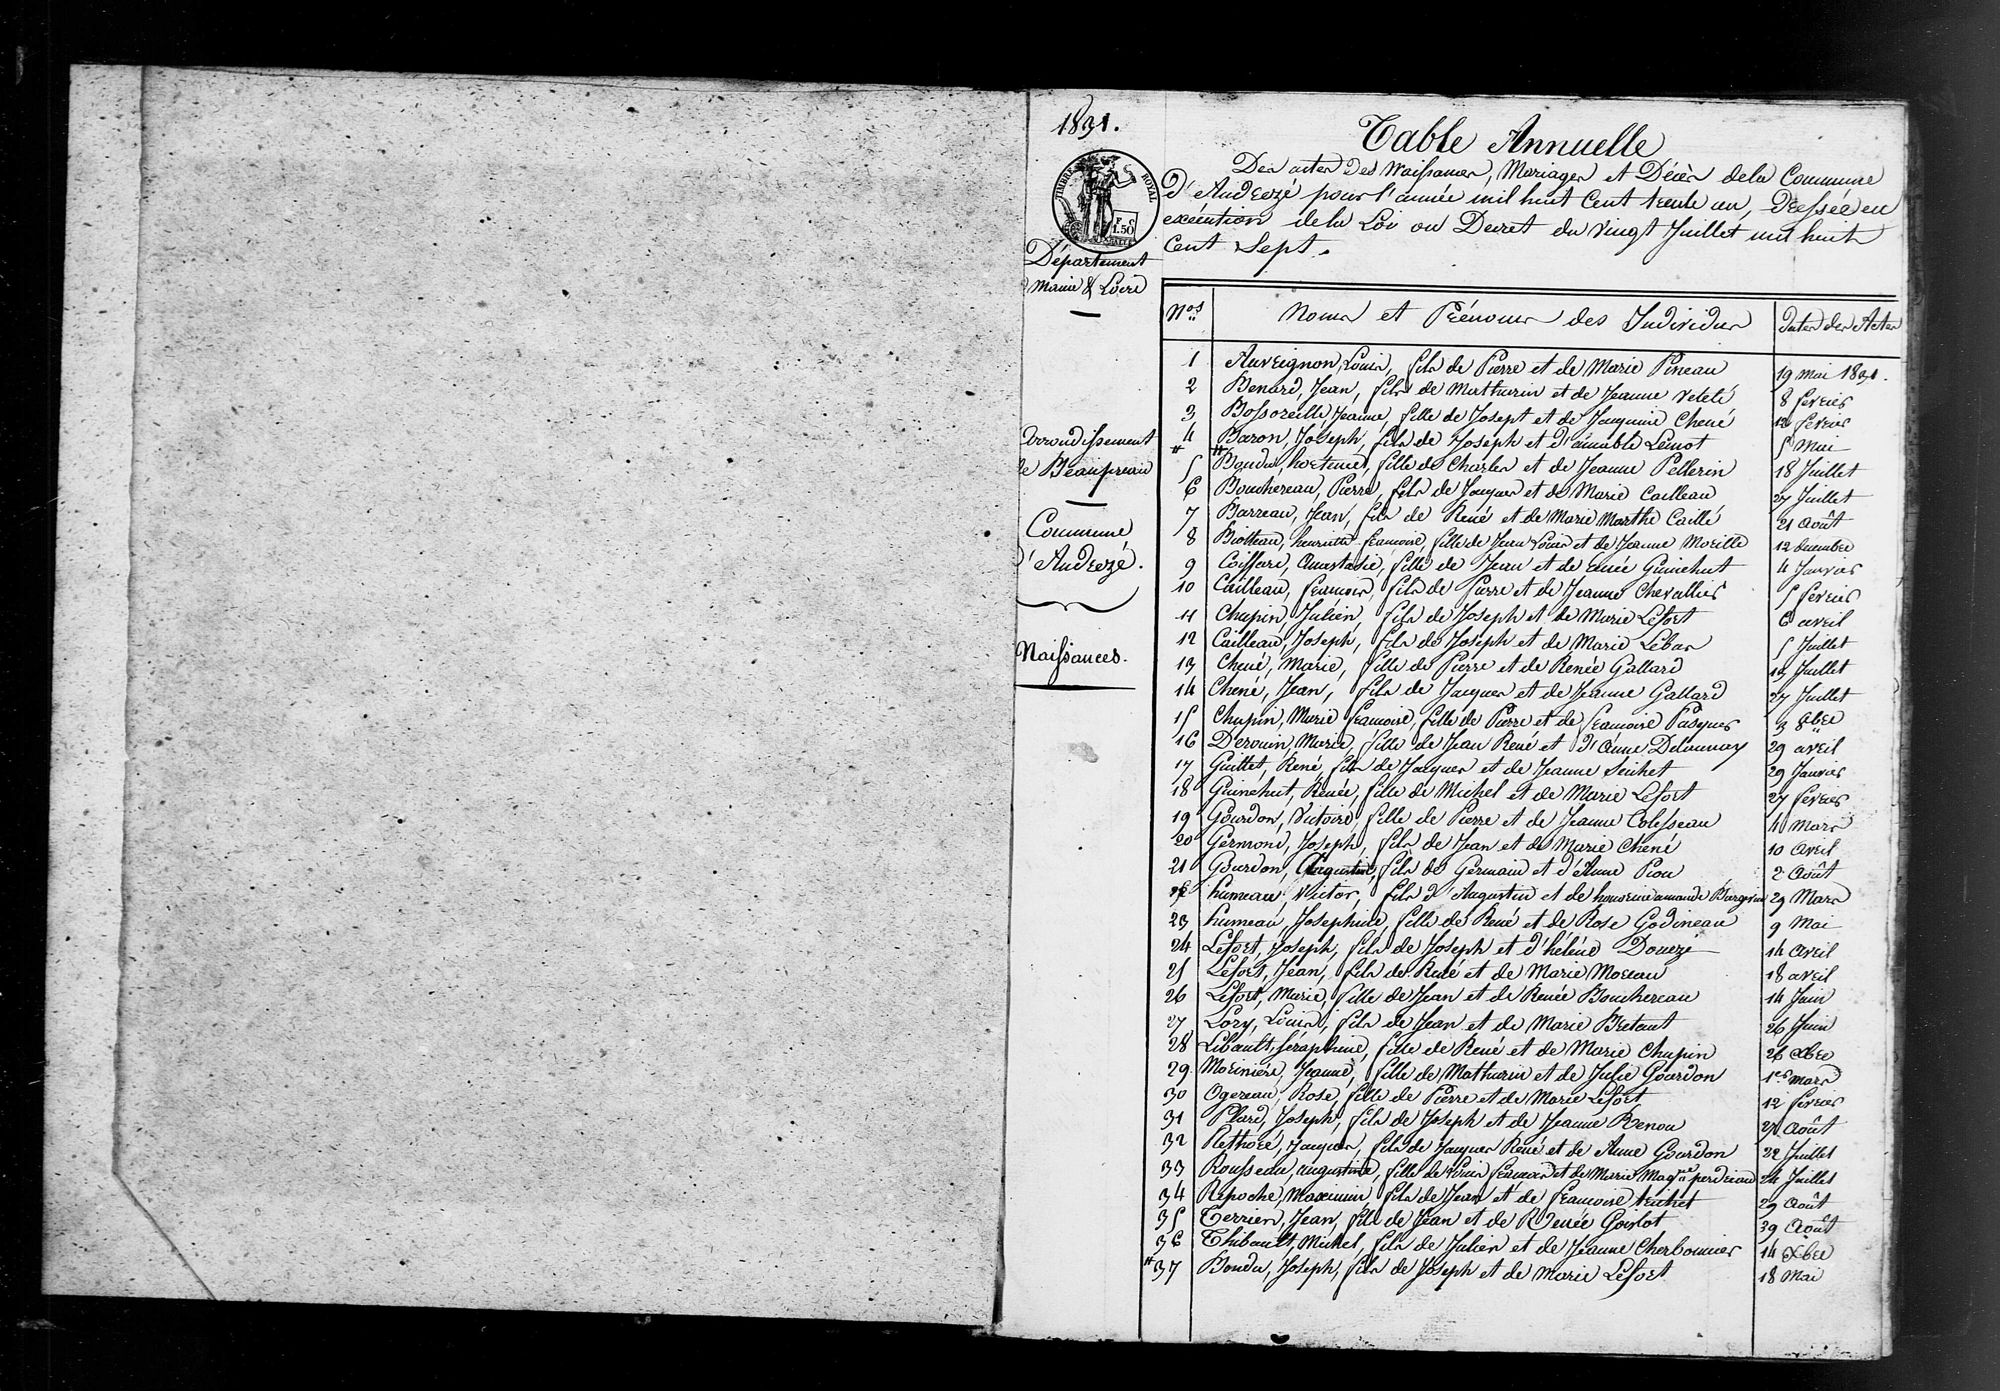 1831.
TIMBRE ROYAL
F C
1.50
Département
Maine & Loire
Arrondissement
de Beaupreau
Commune
d'Andrezé.
Naissances.
Table Annuelle
Des actes des Naissances, Mariages et Décès de la Commune
d'Andrezé pour l'année mil huit cent trente un, dressée en
exécution de la Loi ou Decret du vingt Juillet mil huit
cent sept.
Nos Noms et Prénoms des Individus Dates des Actes
1 Auvrignon, Louis, fils de Pierre et de Marie Pineau 19 Mai 1831.
2 Benard, Jean, fils de Mathurin et de Jeanne Vetelé 8 fevrier
3 Bossoreille, Jeanne, fille de Josept et de Jacquine Chené 12 fevrier
4 Baron, Joseph, fils de Joseph et d'aimable Lemot 5 Mai
5 Bondu, hortense, fille de Charles et de Jeanne Pellerin 18 Juillet
6 Bouchereau, Pierre, fils de Jacques et de Marie Cailleau 27 Juillet
7 Barreau, Jean, fils de René et de Marie Marthe Caillé 21 Août
8 Biotteau, henriette françoise, fille de Jean Louis et de Jeanne Moreille 12 decembre
9 Coiffard, Anastasie, fille de Jean et de Renée Guinehut 4 Janvier
10 Cailleau, françois, fils de Pierre et de Jeanne Chevallier 5 fevrier
11 Chupin, Julien, fils de Joseph et de Marie Lefort 6 avril
12 Cailleau, Joseph, fils de Joseph et de Marie Lebas 5 Juillet
13 Chené, Marie, fille de Pierre et de Renée Gallard 12 Juillet
14 Chené, Jean, fils de Jacques et de Jeanne Gallard 27 Juillet
15 Chupin, Marie françoise, fille de Pierre et de françoise Pasquier 3 8bre
16 Derouin, Marie, fille de Jean René et d'Anne Delaunay 29 avril
17 Guillet, René, fils de Jacques et de Jeanne Seichet 29 Janvier
18 Guinehut, Renée, fille de Michel et de Marie Lefort 27 fevrier
19 Gourdon, Victoire, fille de Pierre et de Jeanne Colesseau 11 Mars
20 Germond, Joseph, fils de Jean et de Marie Chené 10 Avril
21 Gourdon, Augustin, fils de Germain et d'Anne Piou 2 Août
22 humeau, Victor, fils d'Augustin et de honorine amande Burgevin 29 Mars
23 humeau, Josephine, fille de René et de Rose Godineau 9 Mai
24 Lefort, Joseph, fils de Joseph et d'hélène Doueze 14 Avril
25 Lefort, Jean, fils de René et de Marie Moreau 18 avril
26 Lefort, Marie, fille de Jean et de Renée Bouchereau 14 Juin
27 Lory, Louis, fils de Jean et de Marie Bretaut 26 Juin
28 Libault, Séraphine, fille de René et de Marie Chupin 26 Xbre
29 Morinière, Jeanne, fille de Mathurin et de Julie Gourdon 1er mars
30 Ogereau, Rose, fille de Pierre et de Marie Lefort 12 fevrier
31 Plard, Joseph, fils de Joseph et de Jeanne Renou 21 Août
32 Rethoré, Jacques, fils de Jacques René et de Anne Gourdon 22 Juillet
33 Rousseau, augustine, fille de Louis françois et de Marie Magne perdriau 24 Juillet
34 Repoche, Maximin fils de Jean et de françoise teichet 29 Août
35 Terrien, Jean, fils de Jean et de Renée Goislot 39 Août
36 Thibault, Michel, fils de Julien et de Jeanne Cherbonnier 14 Xbre
37 Bondu, Joseph, fils de Joseph et de Marie Lefort 18 Mai